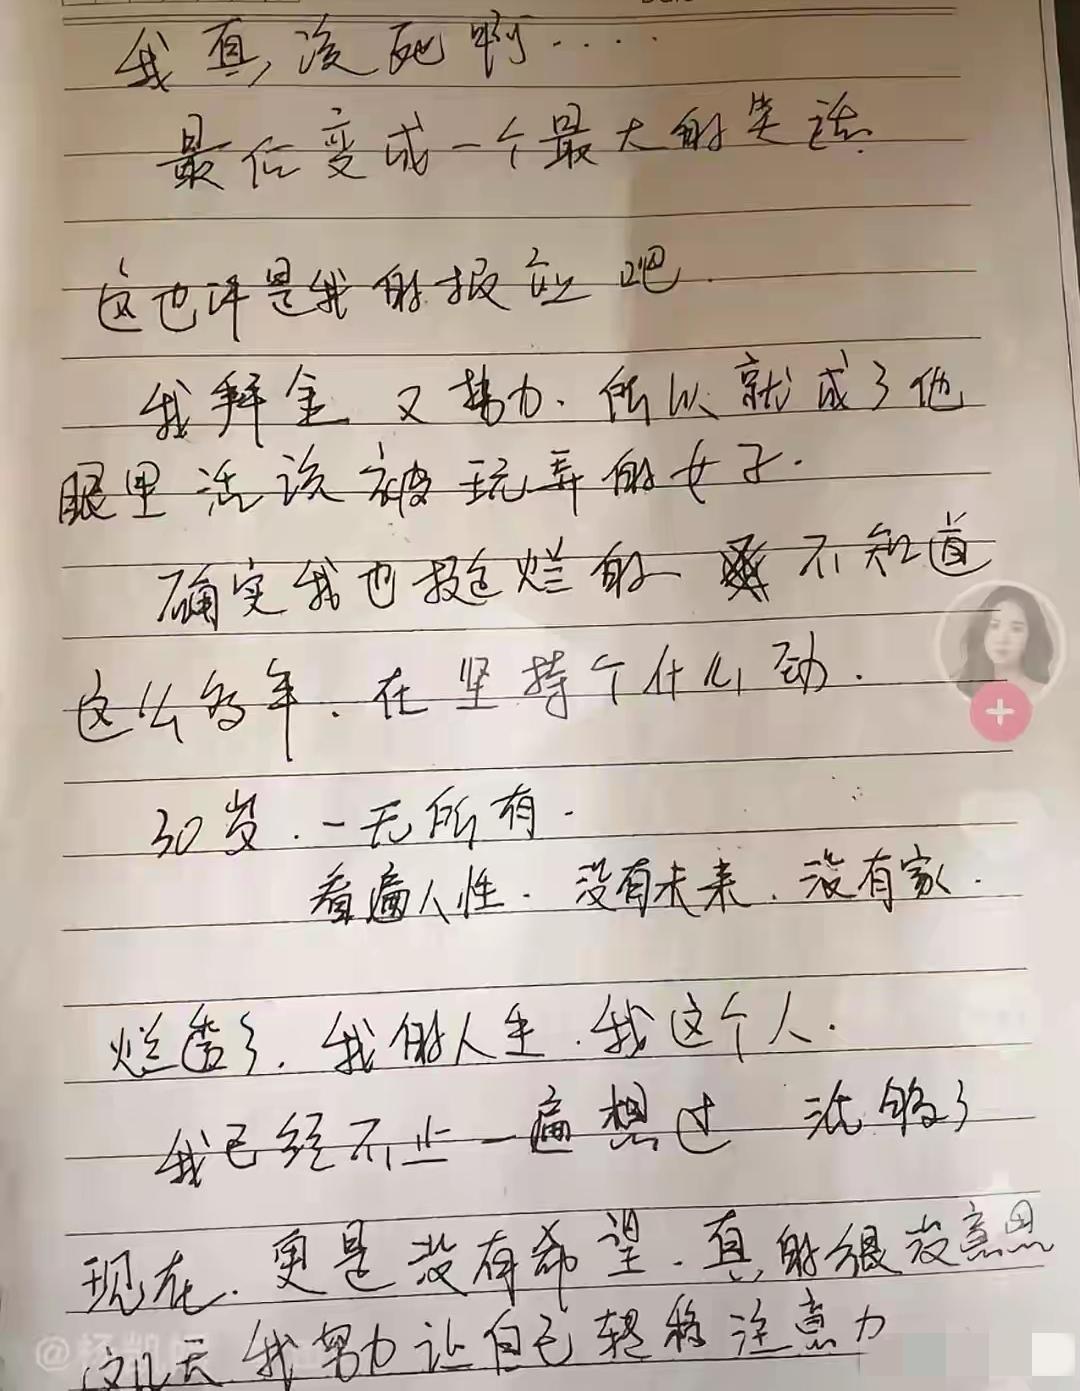 我真没死啊....
最后变成一个最大的笑话.
这也许是我的报应吧.
我拜金又势力.所以就成了他
眼里活该被玩弄的女子.
确实我也挺烂的 不知道
这么多年.在坚持个什么劲.
30岁.一无所有.
看遍人性.没有未来.没有家.
烂透了.我的人生.我这个人.
我已经不止一遍想过 活够了
现在.更是没有希望.真的很没意思
这几天 我努力让自己转移注意力
@杨凯